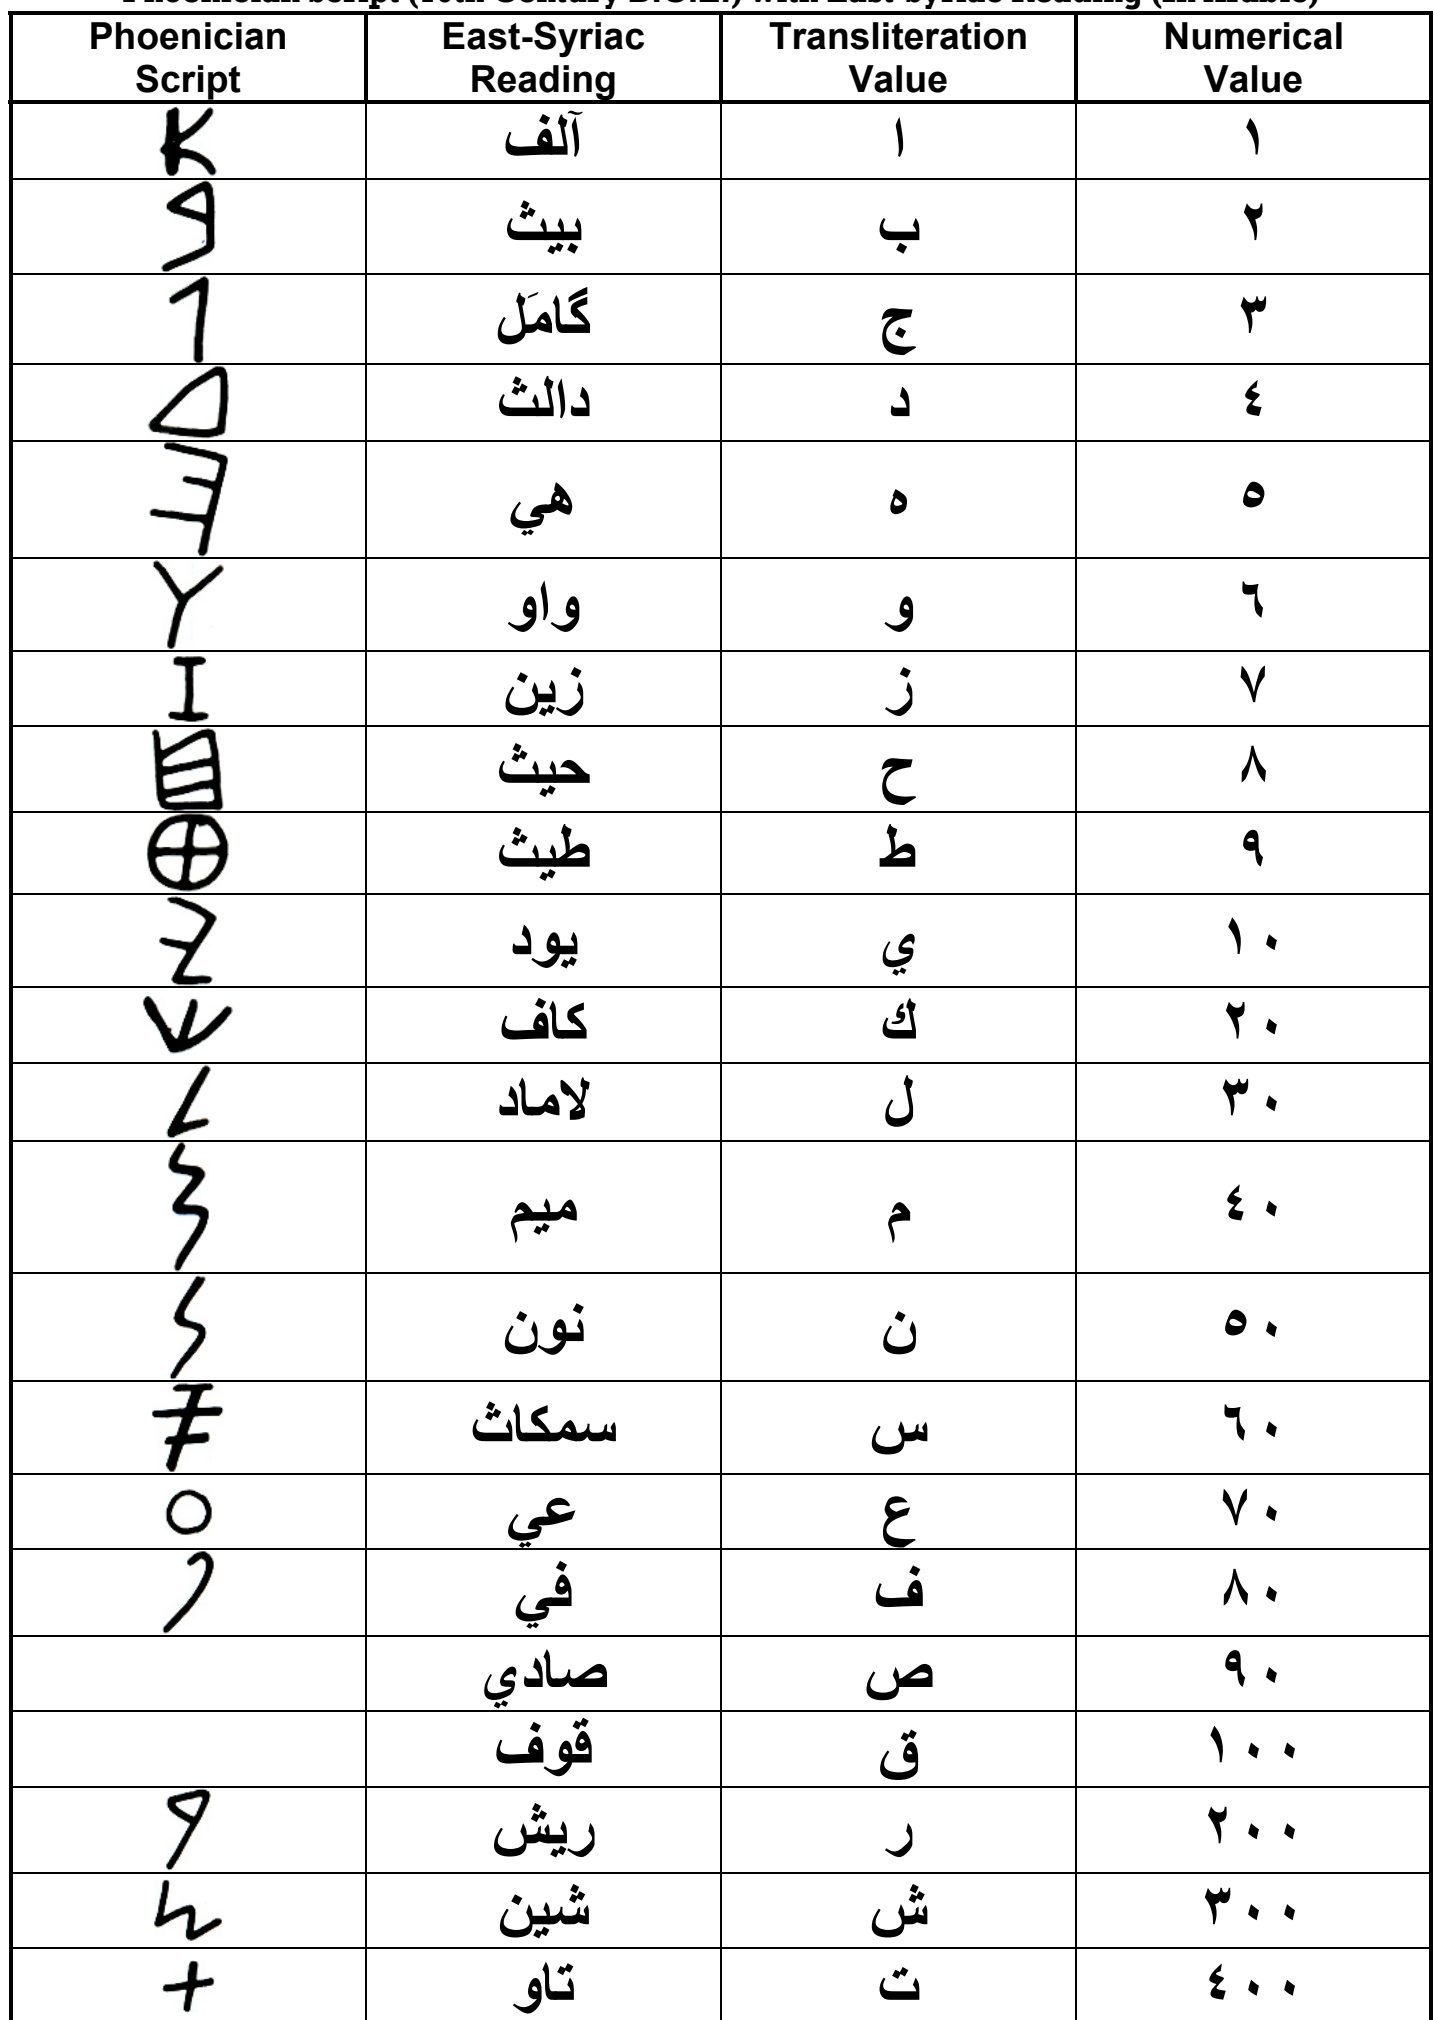 Phoenician Script (10th Century B.C.E.) with East-Syriac Reading (in Arabic)
Phoenician Script | East-Syriac Reading | Transliteration Value | Numerical Value
𐤀 | آلف | ا | ١
𐤁 | بيث | ب | ٢
𐤂 | گامَل | ج | ٣
𐤃 | دالث | د | ٤
𐤄 | هي | ه | ٥
𐤅 | واو | و | ٦
𐤆 | زين | ز | ٧
𐤇 | حيث | ح | ٨
𐤈 | طيث | ط | ٩
𐤉 | يود | ي | ١٠
𐤊 | كاف | ك | ٢٠
𐤋 | لاماد | ل | ٣٠
𐤌 | ميم | م | ٤٠
𐤍 | نون | ن | ٥٠
𐤎 | سمكاث | س | ٦٠
𐤏 | عي | ع | ٧٠
𐤐 | في | ف | ٨٠
صادي | ص | ٩٠
قوف | ق | ١٠٠
𐤓 | ريش | ر | ٢٠٠
𐤔 | شين | ش | ٣٠٠
𐤕 | تاو | ت | ٤٠٠